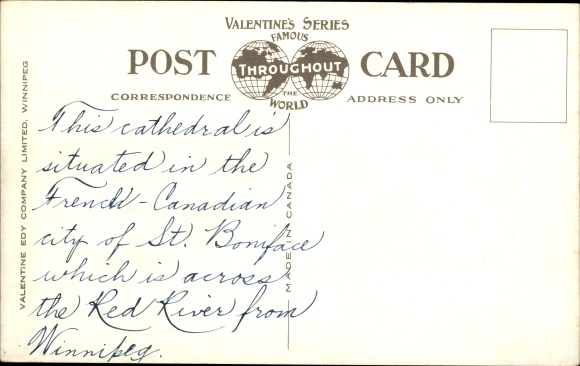 VALENTINE'S SERIES
FAMOUS
POST THROUGHOUT CARD
THE
WORLD
CORRESPONDENCE ADDRESS ONLY
VALENTINE EDY COMPANY LIMITED, WINNIPEG
This cathedral is
situated in the
French-Canadian
city of St. Boniface
which is across
the Red River from
Winnipeg.
MADE IN CANADA